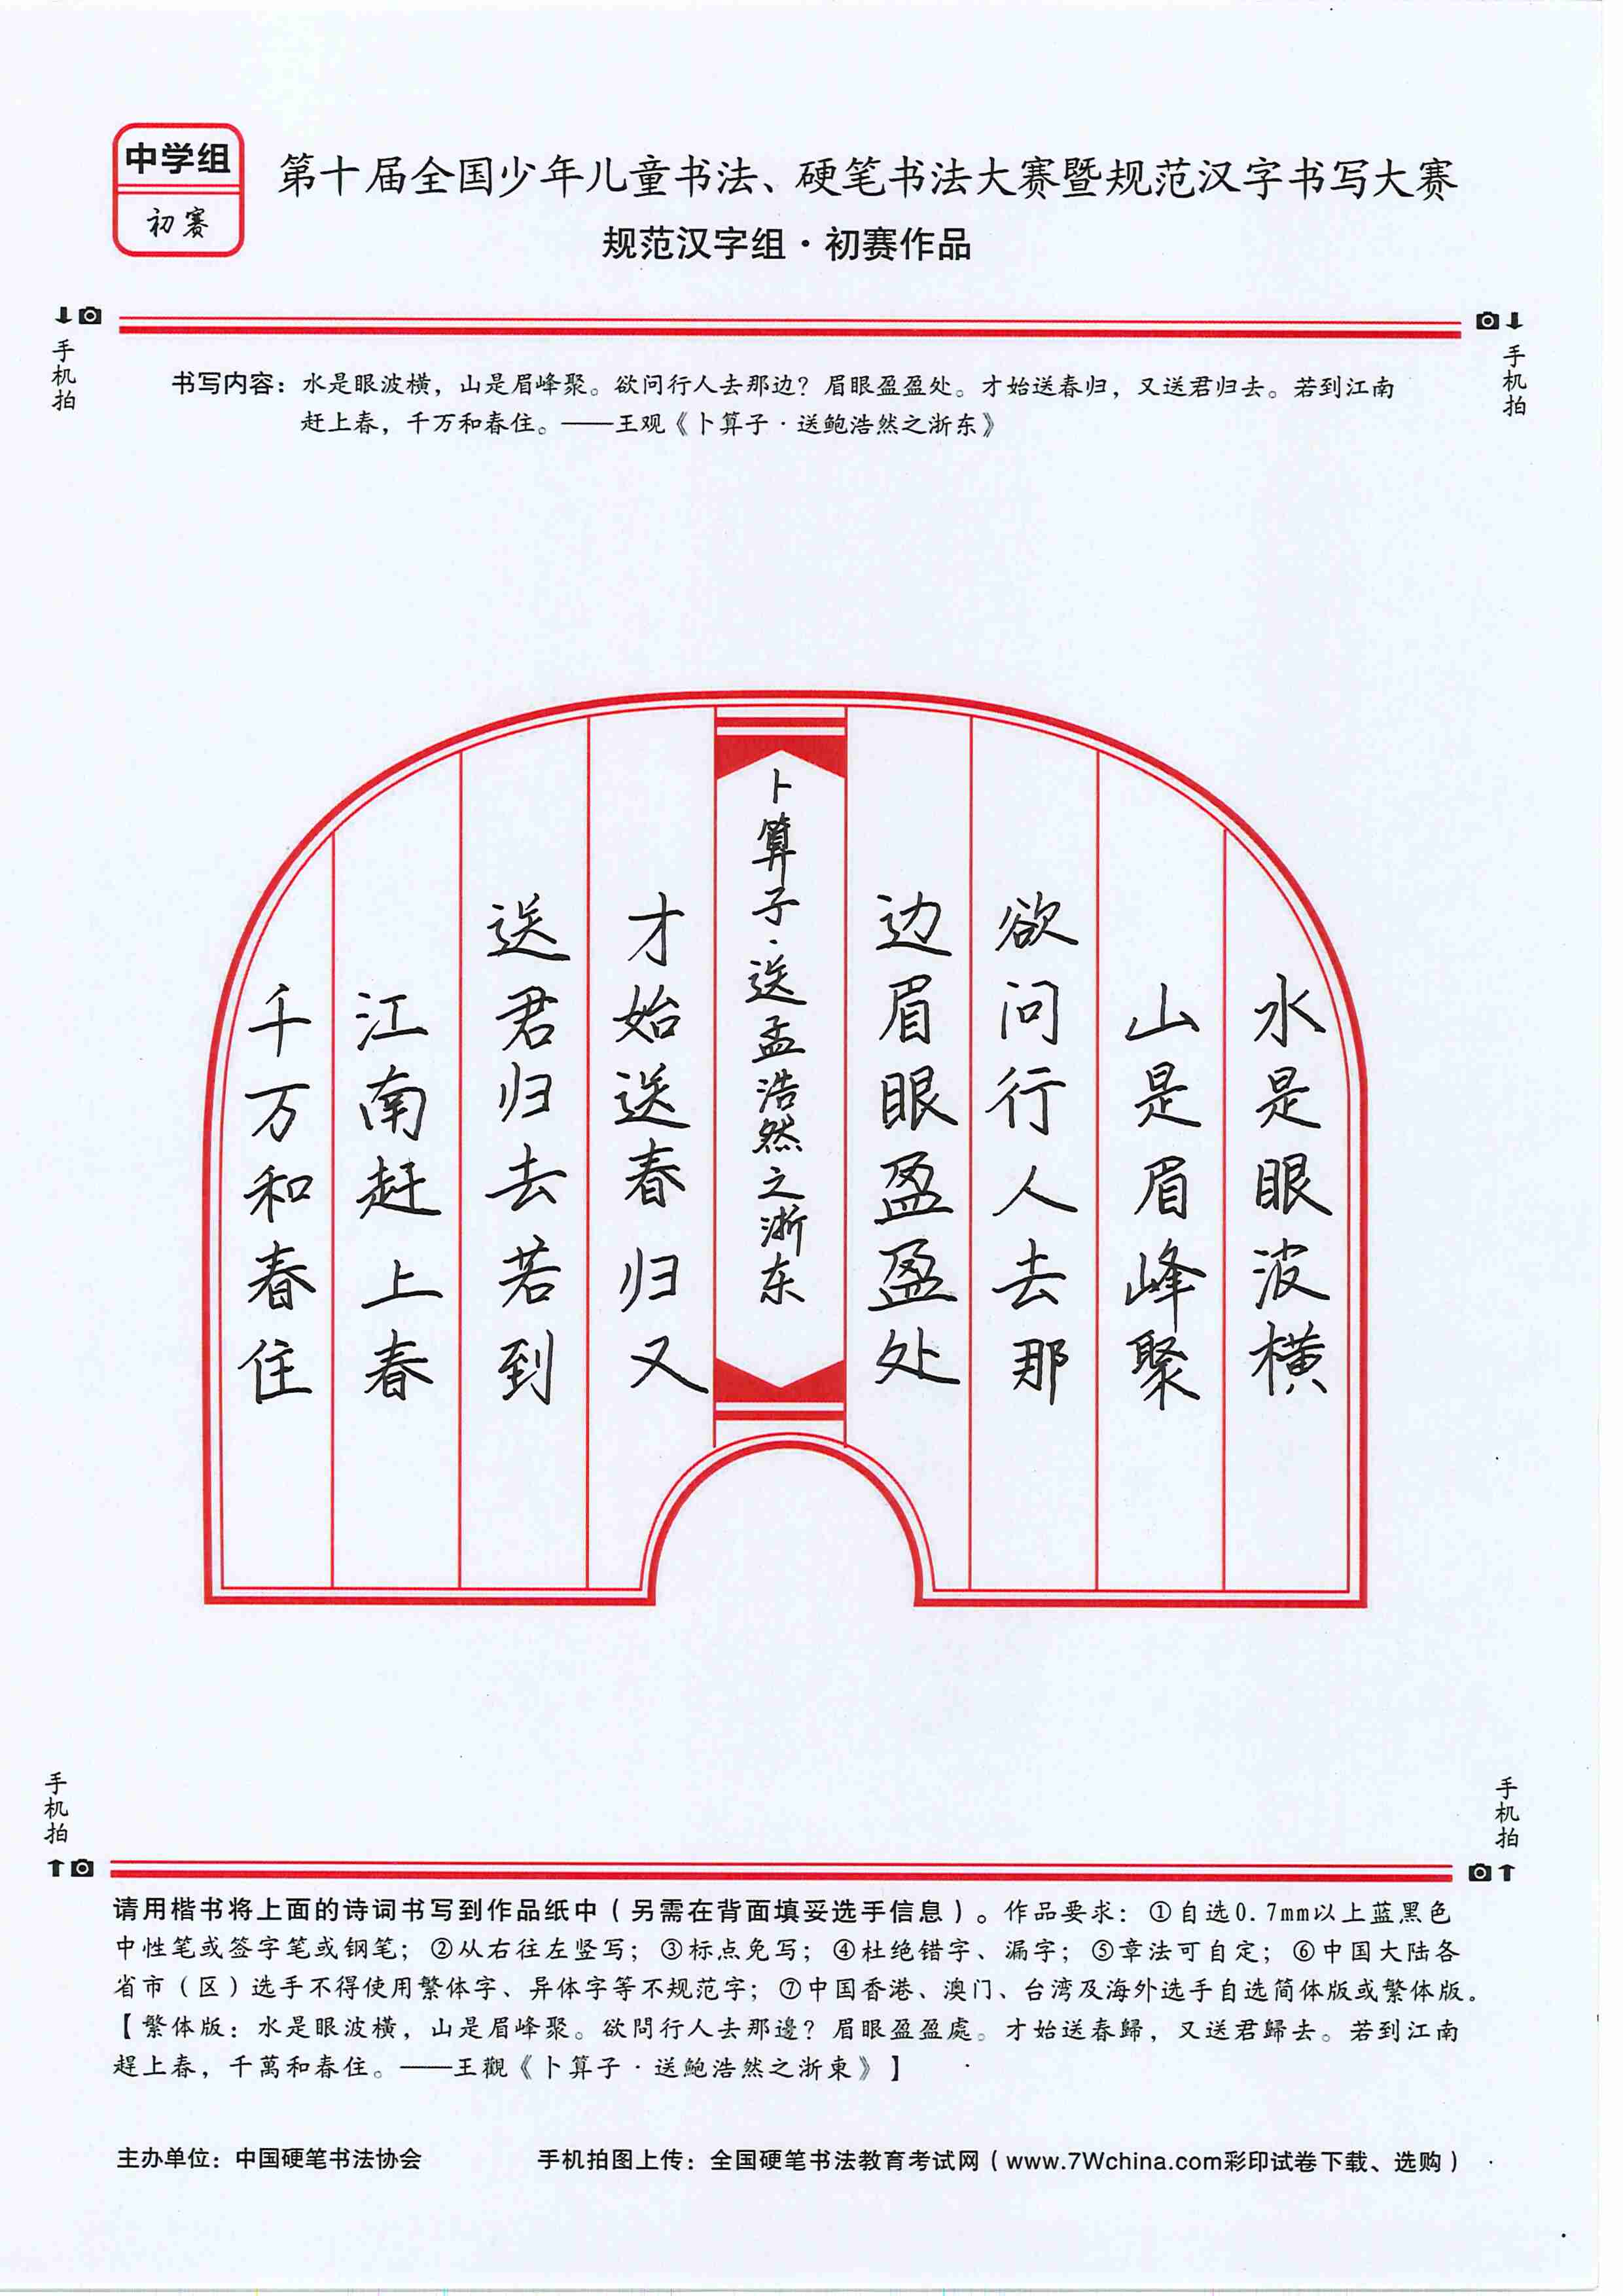 中学组
初赛
第十届全国少年儿童书法、硬笔书法大赛暨规范汉字书写大赛
规范汉字组·初赛作品
手机拍
手机拍
书写内容：水是眼波横，山是眉峰聚。欲问行人去那边？眉眼盈盈处。才始送春归，又送君归去。若到江南
赶上春，千万和春住。——王观《卜算子·送鲍浩然之浙东》
水是眼波横
山是眉峰聚
欲问行人去那
边眉眼盈盈处
卜算子·送孟浩然之浙东
才始送春归又
送君归去若到
江南赶上春
千万和春住
手机拍
手机拍
请用楷书将上面的诗词书写到作品纸中（另需在背面填妥选手信息）。作品要求：①自选0.7mm以上蓝黑色
中性笔或签字笔或钢笔；②从右往左竖写；③标点免写；④杜绝错字、漏字；⑤章法可自定；⑥中国大陆各
省市（区）选手不得使用繁体字、异体字等不规范字；⑦中国香港、澳门、台湾及海外选手自选简体版或繁体版。
【繁体版：水是眼波横，山是眉峰聚。欲問行人去那邊？眉眼盈盈處。才始送春歸，又送君歸去。若到江南
趕上春，千萬和春住。——王觀《卜算子·送鮑浩然之浙東》】
主办单位：中国硬笔书法协会
手机拍图上传：全国硬笔书法教育考试网（www.7Wchina.com彩印试卷下载、选购）